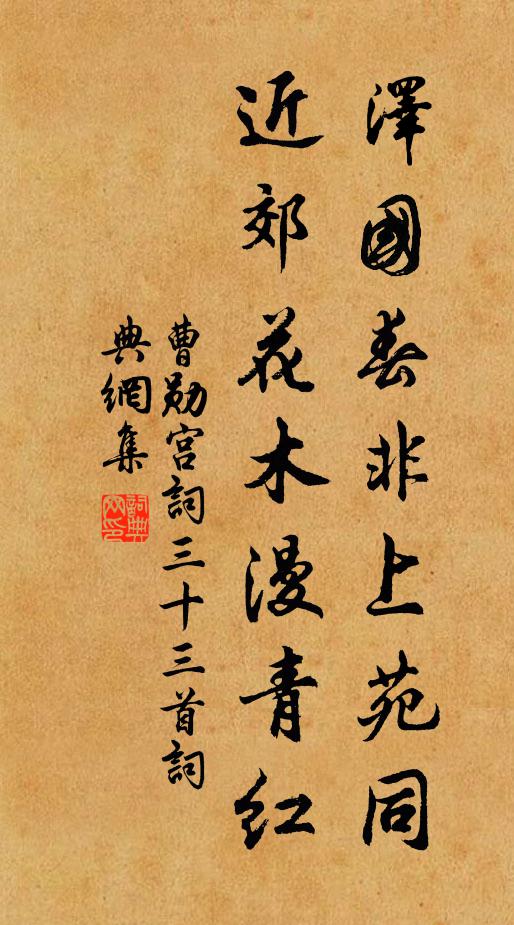 澤國春非上苑同
近郊花木漫青紅
曹勛宮詞三十三首詞
典網集
詞典網印